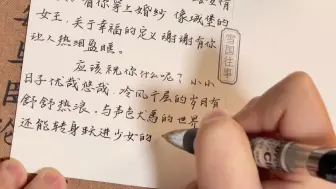 看你穿上婚纱 像城堡的
女王,关于幸福的定义谢谢有你
让人热泪盈眶。
应该祝你什么呢?小小
日子忧哉悠哉,冷风千层的岁月有
舒舒热浪,与声色犬马的世界
还能转身跃进少女的
雪国往事